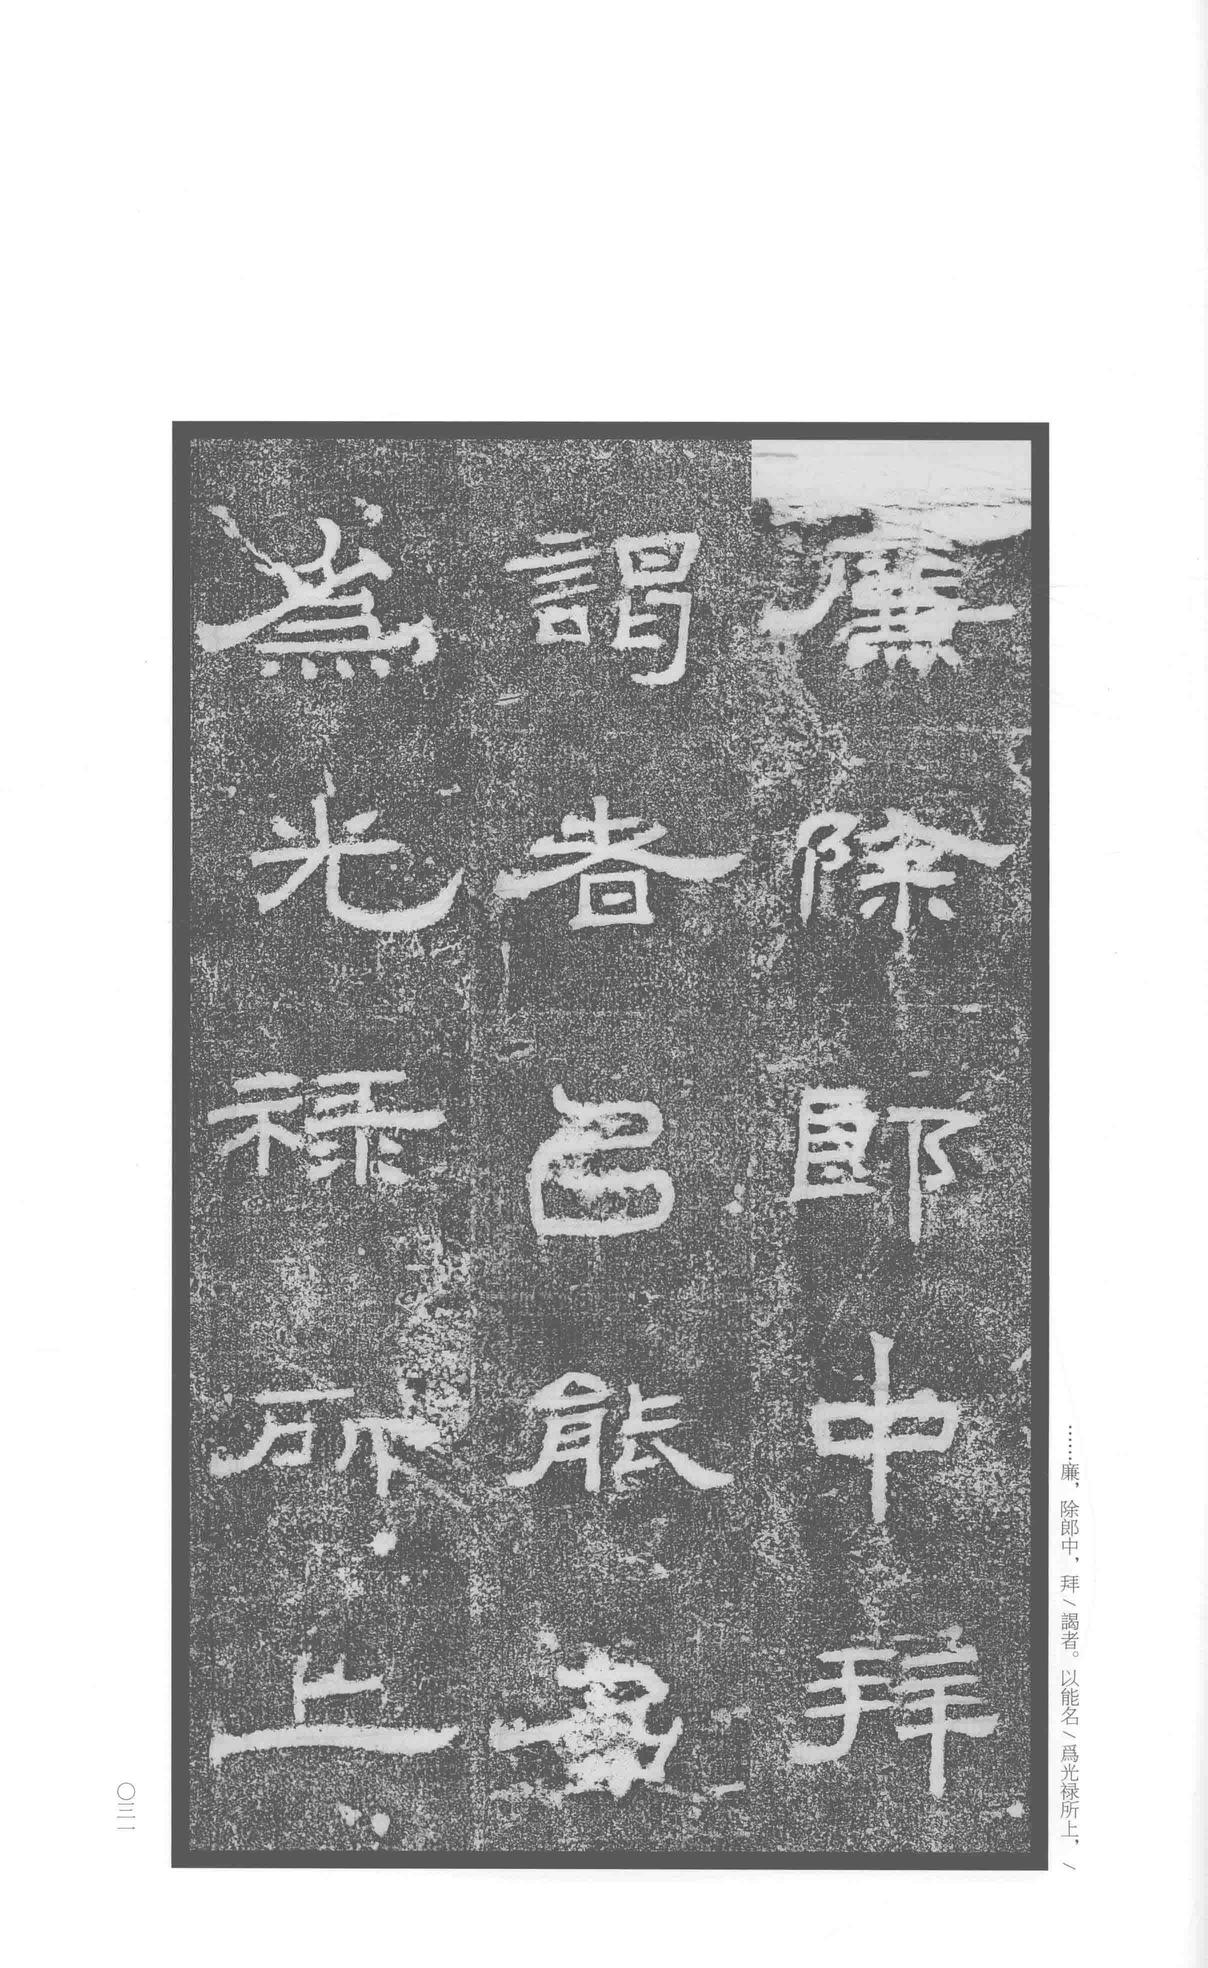 廉除郎中拜
謁者㠯能名
爲光禄所上
……廉，除郎中，拜／謁者。以能名／爲光禄所上，／
〇三一